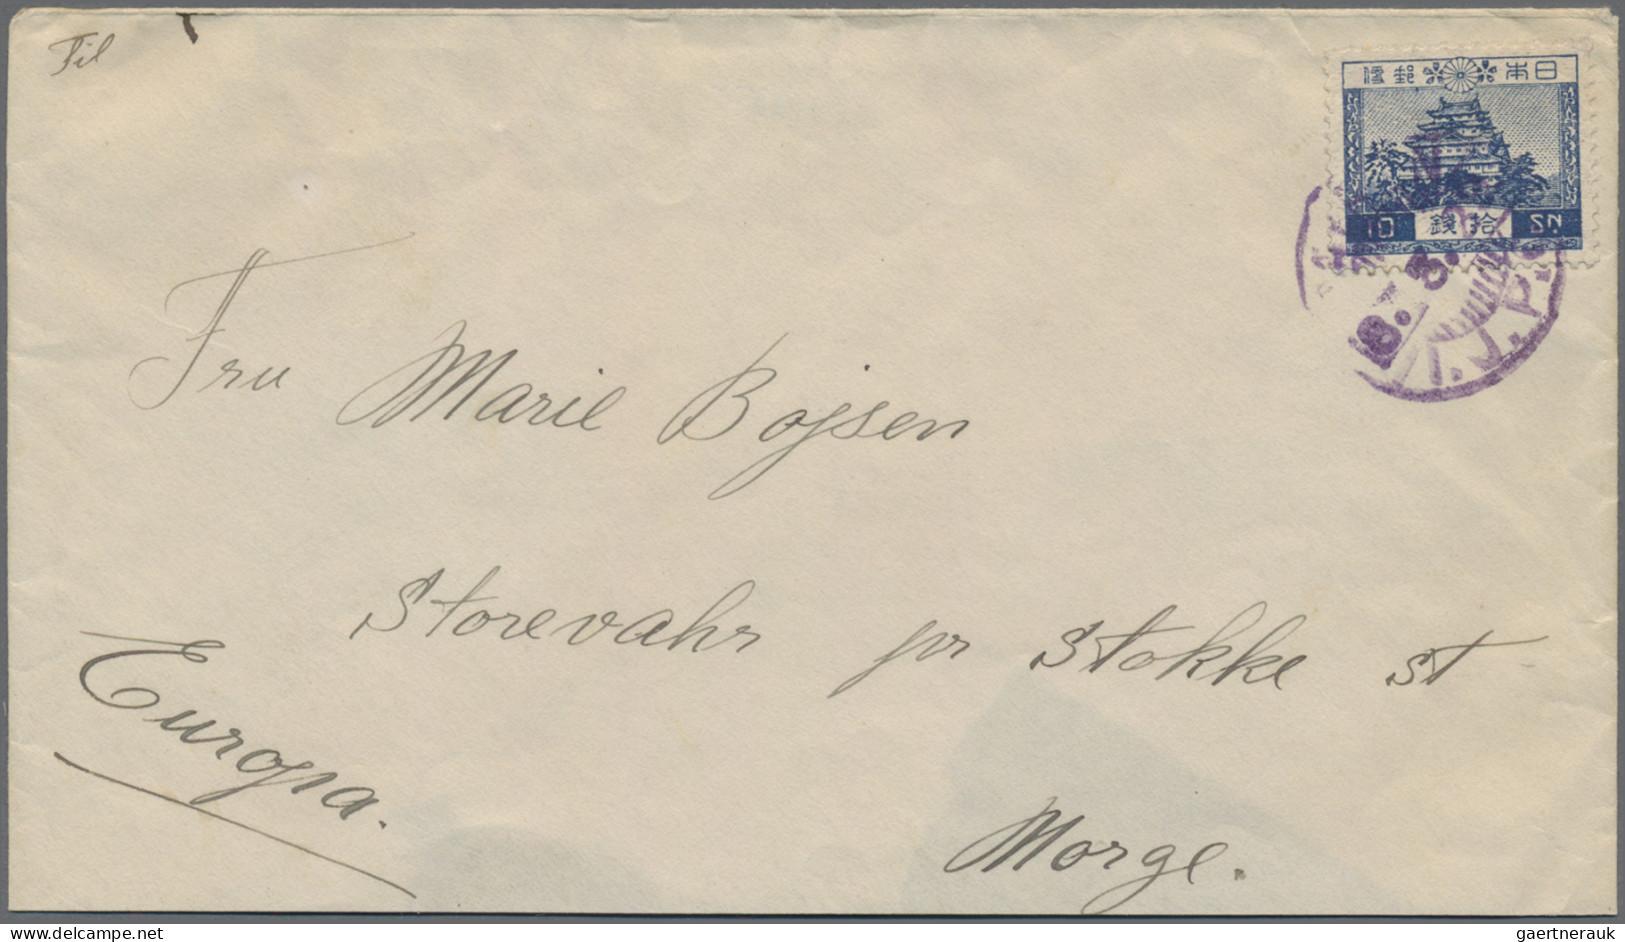 Til
日本郵便
10 拾錢 SN
8. 3.
I.J.P.O
Fru Marie Bojsen
Storevahr pr Stokke st
Europa.
Norge.
gaertnerauk